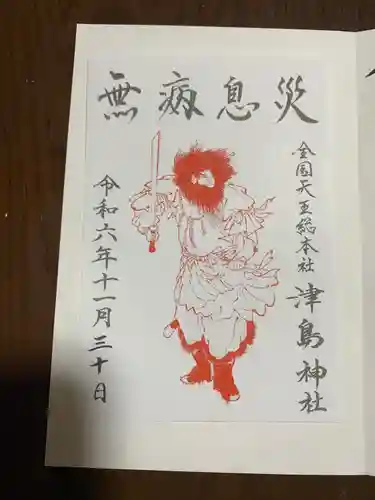 無病息災
全国天王総本社
津島神社
令和六年十一月三十日